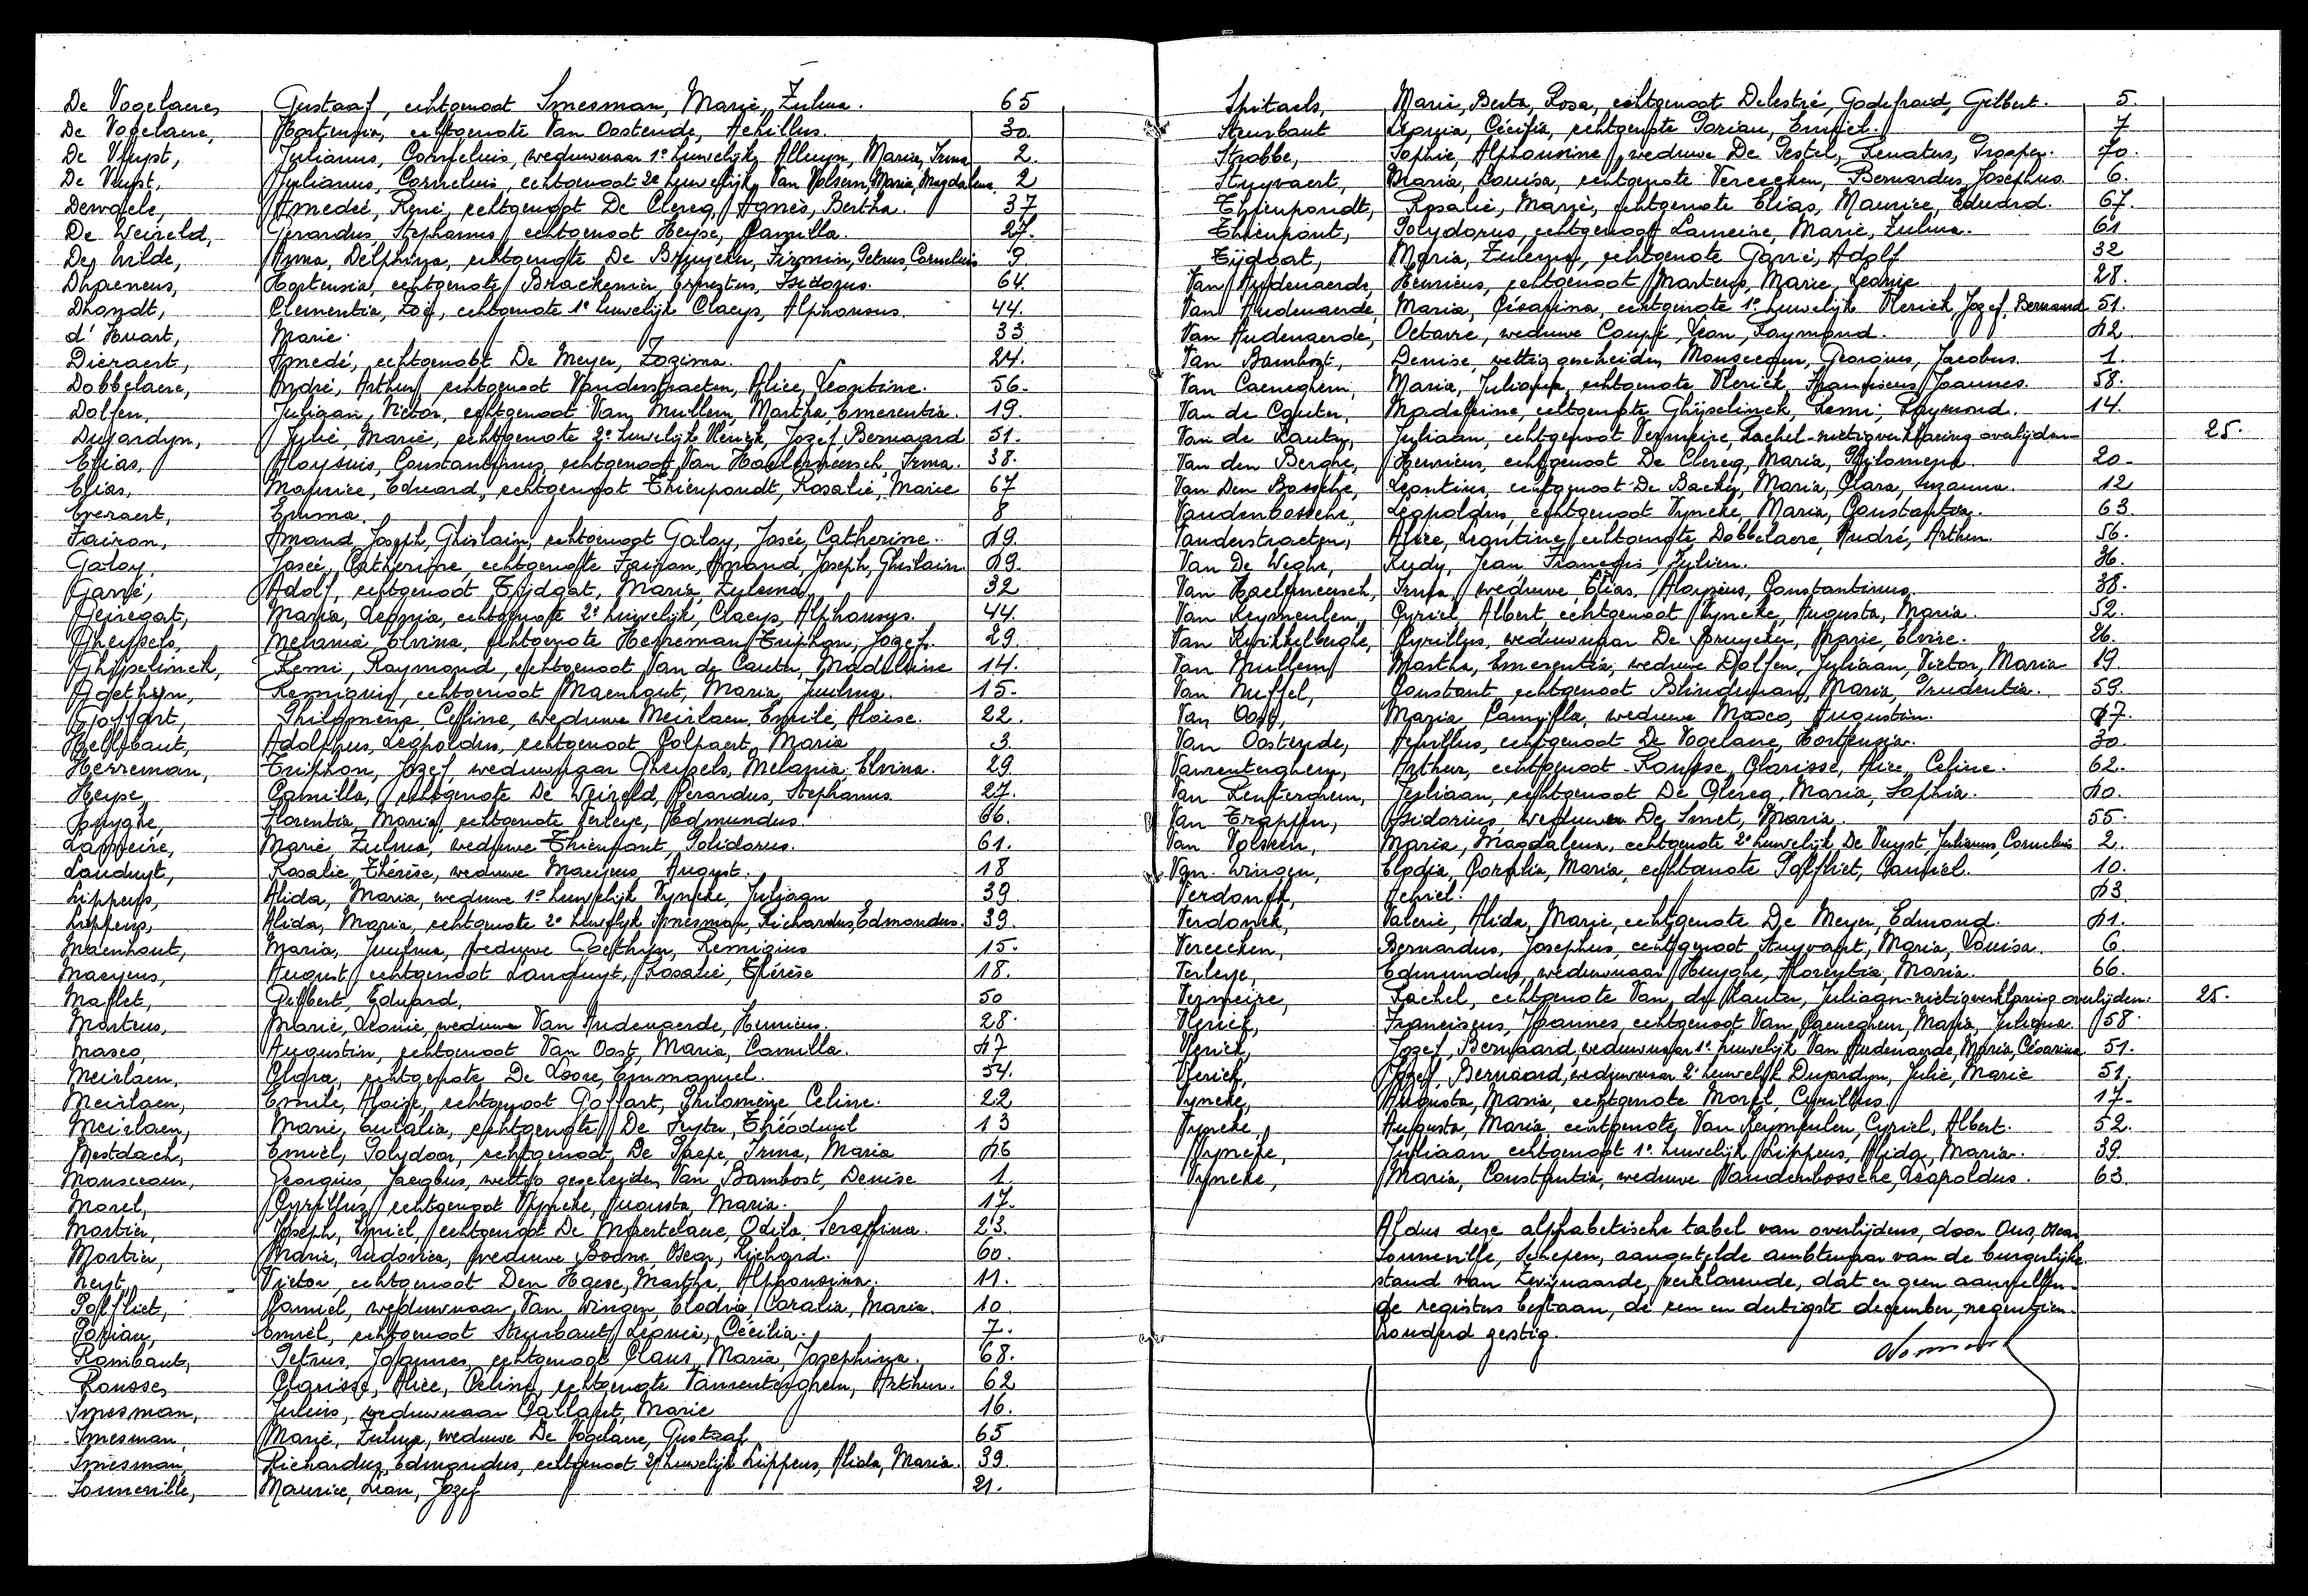 De Vogelaere, Gustaaf, echtgenoot Smesman, Marie, Zulma. 65
De Vogelaere, Hortensia, echtgenote Van Oostende, Achillus. 30.
De Vuyst, Julianus, Cornelius, weduwnaar 1e huwelijk, Alluyn, Maria, Irma 2.
De Vuyst, Julianus, Cornelius, echtgenoot 2e huwelijk, Van Volsem, Maria, Magdalena. 2
Dewaele, Amedeé, René, echtgenoot De Clercq, Agnès, Bertha. 37
De Weireld, Gerardus, Stephanus, echtgenoot Heyse, Camilla. 27.
De Wilde, Irma, Delphina, echtgenote De Bruycker, Firmin, Petrus, Cornelius 9
Dhaenens, Hortensia, echtgenote Brackenier, Ernestus, Isidorus. 64.
Dhondt, Clementia, Zoé, echtgenote 1e huwelijk Claeys, Alphonsus. 44.
d'Huart, Marie. 33
Dieraert, Amedé, echtgenoot De Meyer, Zozima. 24.
Dobbelaere, André, Arthur, echtgenoot Vanderstraeten, Alice, Leontine. 56.
Dolfen, Juliaan, Victor, echtgenoot Van Mullem, Martha, Emerentia. 19.
Dujardyn, Julie, Marie, echtgenote 2e huwelijk Vlerick, Jozef, Bernaard 51.
Elias, Aloysius, Constantinus, echtgenoot Van Haelemeersch, Irma. 38.
Elias, Maurice, Eduard, echtgenoot Thienpondt, Rosalie, Marie 67
Everaert, Emma. 8
Fairon, Amand, Joseph, Ghislain, echtgenoot Galoy, Josée, Catherine. 19.
Galoy, Josée, Catherine, echtgenote Fairon, Amand, Joseph, Ghislain 19.
Garré, Adolf, echtgenoot Tijdgat, Maria, Zulema. 32
Geiregat, Maria, Leonia, echtgenote 2e huwelijk, Claeys, Alphonsus. 44.
Gheysels, Melania, Elvina, echtgenote Herreman, Triphon, Jozef. 29.
Ghyselinck, Remi, Raymond, echtgenoot Van de Cauter, Madeleine 14.
Goethyn, Remigius, echtgenoot Maenhout, Maria, 15.
Goffart, Philomène, Celine, weduwe Meirlaen, Emile, Aloise. 22.
Hellebaut, Adolphus, Leopoldus, echtgenoot Colpaert, Maria 3.
Herreman, Triphon, Jozef, weduwnaar Gheysels, Melania, Elvina. 29
Heyse, Camilla, echtgenote De Weireld, Gerardus, Stephanus 27.
Huyghe, Florentia, Maria, echtgenote Verleye, Edmundus. 66.
Lameire, Marie, Zulma, weduwe Thienpont, Polidorus. 61.
Landuyt, Rosalie, Thérèse, weduwe Maeyens, August. 18
Lippens, Alida, Maria, weduwe 1e huwelijk Vyncke, Juliaan 39
Lippens, Alida, Maria, echtgenote 2e huwelijk Smesman, Richardus, Edmondus. 39.
Maenhout, Maria, weduwe Goethyn, Remigius 15.
Maeyens, August, echtgenoot Landuyt, Rosalie, Thérèse 18.
Maflet, Gilbert, Eduard, 50
Martens, Marie, Leonie, weduwe Van Audenaerde, Henricus. 28.
Masco, Augustin, echtgenoot Van Oost, Maria, Camilla. 47
Meirlaen, Clara, echtgenote De Loore, Emmanuel. 54.
Meirlaen, Emile, Aloise, echtgenoot Goffart, Philomène, Celine. 22
Meirlaen, Marie, Eulalia, echtgenote De Seyter, Théoduul 13
Mestdach, Emiel, Polydoor, echtgenoot De Paepe, Irma, Maria
Monsecour, Georgius, Jacobus, wettig gescheiden Van Bambost, Denise 1.
Morel, Cyrillus, echtgenoot Vyncke, Augusta, Maria. 17.
Mortier, Joseph, Emiel, echtgenoot De Maertelaere, Odila, Seraphina. 23.
Mortier, Marie, Ludovica, weduwe Bodne, Oscar, Richard. 60.
Neyt, Victor, echtgenoot Den Haese, Martha, Alphonsina. 11.
Polfliet, Camiel, weduwnaar, Van Wingen, Elodia, Coralia, Maria. 10.
Porian, Emiel, echtgenoot Steurbaut, Leonie, Cécilia. 7.
Rombaut, Petrus, Joannes, echtgenoot Claus, Maria, Josephina. 68.
Rousse, Clarisse, Alice, Celine, echtgenote Vanrenterghem, Arthur. 62
Smesman, Julius, weduwnaar Gallaert, Marie 16.
Smesman, Marie, Zulma, weduwe De Vogelaere, Gustaaf 65
Smesman, Richardus, Edmondus, echtgenoot 2e huwelijk Lippens, Alida, Maria. 39.
Sonneville, Maurice, Léon, Jozef 21.
Spitaels, Marie, Berta, Rosa, echtgenoot Delestré, Godefroid, Gilbert. 5.
Steurbaut Leonia, Cécilia, echtgenote Porian, Emiel. 7
Strobbe, Sophie, Alphonsine, weduwe De Pestel, Renatus, Prosper. 70.
Stuyvaert, Maria, Louisa, echtgenote Vereecken, Bernardus, Josephus. 6.
Thienpondt, Rosalie, Marie, echtgenote Elias, Maurice, Eduard. 67.
Thienpont, Polydorus, echtgenoot Lameire, Marie, Zulma. 61
Tijdgat, Maria, Zulema, echtgenote Garré, Adolf 32
Van Audenaerde, Henricus, echtgenoot Martens, Marie, Leonie 28.
Van Audenaerde, Maria, Césarina, echtgenote 1e huwelijk Vlerick, Jozef, Bernaard 51.
Van Audenaerde, Octavie, weduwe Coupé, Jean, Raymond. 42
Van Bambost, Denise, wettig gescheiden Monsecour, Georgius, Jacobus. 1.
Van Caeneghem, Maria, Juliana, echtgenote Vlerick, Franciscus, Joannes. 58.
Van de Cauter, Madeleine, echtgenote Ghyselinck, Remi, Raymond. 14.
Van de Kauter, Juliaan, echtgenoot Vermeire, Rachel-nietigverklaring overlijden 25.
Van den Berghe, Henricus, echtgenoot De Clercq, Maria, Philomena. 20
Van Den Bossche, Leontius, echtgenoot De Backer, Maria, Clara, Suzanna. 12
Vandenbossche, Leopoldus, echtgenoot Vyncke, Maria, Constantia. 63.
Vanderstraeten, Alice, Leontine, echtgenote Dobbelaere, André, Arthur. 56.
Van De Weghe, Rudy, Jean, François, Julien. 36.
Van Haelemeersch, Irma, weduwe Elias, Aloysius, Constantinus. 38.
Van Keymeulen, Cyriel, Albert, echtgenoot Vyncke, Augusta, Maria. 52.
Van Kerckelberghe, Cyrillus, weduwnaar De Bruycker, Marie, Elvire. 26.
Van Mullem, Martha, Emerentia, weduwe Dolfen, Juliaan, Victor, Maria 19.
Van Nuffel, Constant, echtgenoot Blindeman, Maria, Prudentia. 59.
Van Oost, Maria, Camilla, weduwe Masco, Augustin. 47.
Van Oostende, Achillus, echtgenoot De Vogelaere, Hortensia. 30.
Vanrenterghem, Arthur, echtgenoot Rousse, Clarisse, Alice, Celine. 62.
Van Renterghem, Juliaan, echtgenoot De Clercq, Maria, Sophia. 40.
Van Trappen, Isidorius, weduwe De Smet, Maria. 55.
Van Volsem, Maria, Magdalena, echtgenote 2e huwelijk, De Vuyst, Julianus, Cornelius 2.
Van Wingen, Elodia, Coralia, Maria, echtgenote Polfliet, Camiel. 10.
Verdonck, Achiel. 43
Verdonck, Valerie, Alida, Marie, echtgenote De Meyer, Edmond. 41.
Vereecken, Bernardus, Josephus, echtgenoot Stuyvaert, Maria, Louisa. 6
Verleye, Edmundus, weduwnaar Huyghe, Florentia, Maria. 66.
Vermeire, Rachel, echtgenote Van de Kauter, Juliaan-nietigverklaring overlijden. 25.
Vlerick, Franciscus, Joannes, echtgenoot Van Caeneghem, Maria, Juliana. 58.
Vlerick, Jozef, Bernaard, weduwnaar 1e huwelijk Van Audenaerde, Maria, Césarina. 51.
Vlerick, Jozef, Bernaard, weduwnaar 2e huwelijk Dujardyn, Julie, Marie 51.
Vyncke, Augusta, Maria, echtgenote Morel, Cyrillus. 17.
Vyncke, Augusta, Maria, echtgenote Van Keymeulen, Cyriel, Albert. 52.
Vyncke, Juliaan, echtgenoot 1e huwelijk Lippens, Alida, Maria. 39
Vyncke, Maria, Constantia, weduwe Vandenbossche, Leopoldus. 63
Aldus deze alphabetische tabel van overlijdens, door Ons, Oscar
Sonneville, Schepen, aangestelde ambtenaar van de burgerlijke
stand van Zwijnaarde, verklarende, dat er geen aanvullen-
de registers bestaan, de een en dertigste december, negentien-
honderd zestig.